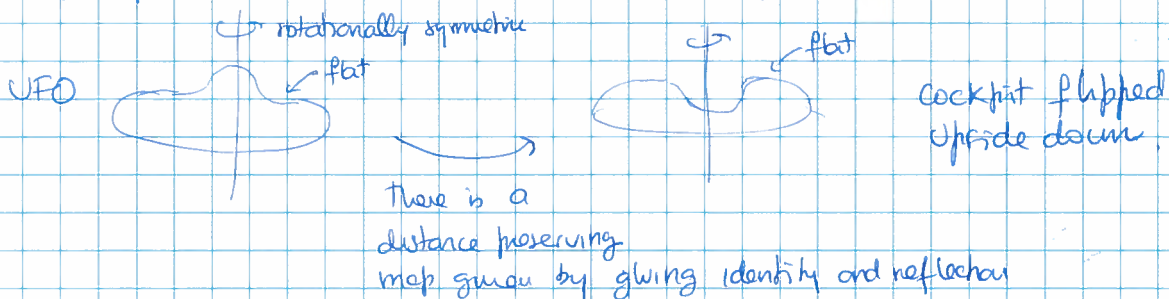 rotationally symmetric
flat
flat
UFO
cockpit flipped
upside down.
There is a
distance preserving
map given by gluing identity and reflection